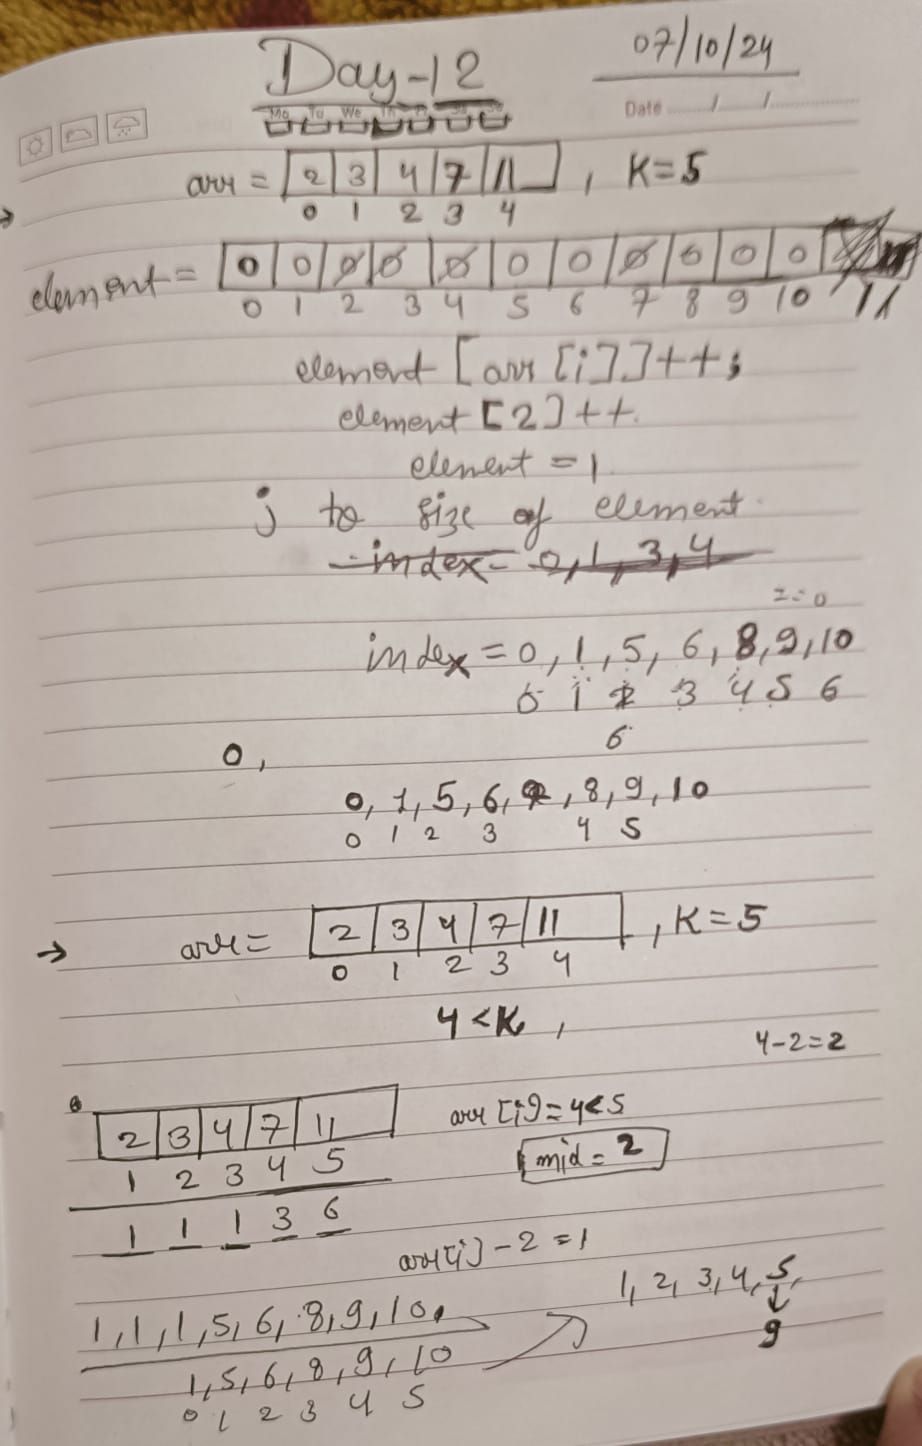 Day-12
07/10/24
Mo Tu We Th Fr Sa Su
Date ....../....../......
arr = 2 3 4 7 11 , K=5
0 1 2 3 4
element = 0 0 0 0 0 0 0 0 0 0 0
0 1 2 3 4 5 6 7 8 9 10 11
element [arr [i]]++;
element [2]++.
element = 1
j to size of element.
index = 0,1,3,4
==0
index = 0, 1, 5, 6, 8, 9, 10
0 1 2 3 4 5 6
6
0,
0, 1, 5, 6, , 8, 9, 10
0 1 2 3 4 5
→ arr = 2 3 4 7 11 , K=5
0 1 2 3 4
4 < K,
4-2=2
2 3 4 7 11
arr [i] = 4<5
1 2 3 4 5
mid = 2
1 1 1 3 6
arr[i] - 2 = 1
1, 2, 3, 4, 5,
↓
9
1, 1, 1, 5, 6, 8, 9, 10,
1, 5, 6, 8, 9, 10
0 1 2 3 4 5